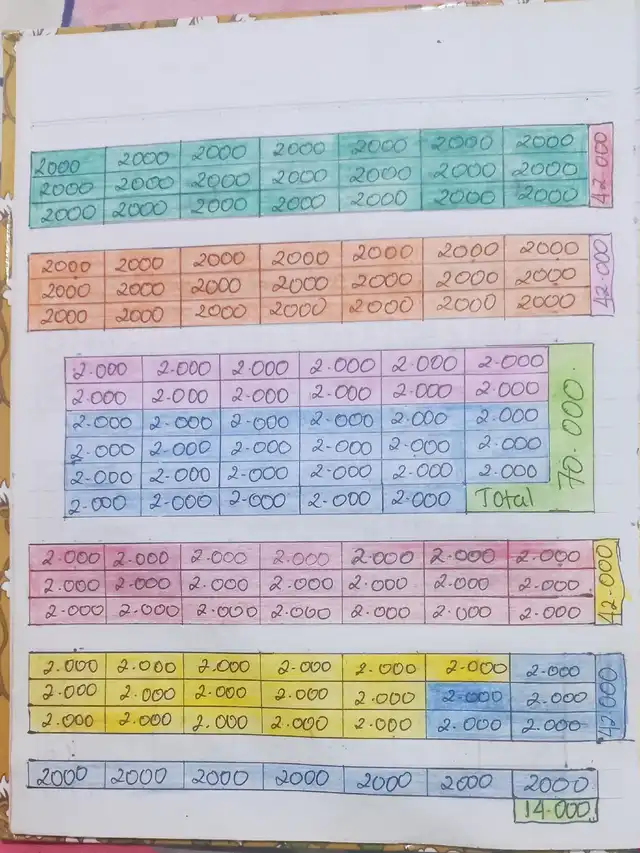 2000 2000 2000 2000 2000 2000 2000
2000 2000 2000 2000 2000 2000 2000
2000 2000 2000 2000 2000 2000 2000
42.000
2000 2000 2000 2000 2000 2000 2000
2000 2000 2000 2000 2000 2000 2000
2000 2000 2000 2000 2000 2000 2000
42.000
2.000 2.000 2.000 2.000 2.000 2.000
2.000 2.000 2.000 2.000 2.000 2.000
2.000 2.000 2.000 2.000 2.000 2.000
2.000 2.000 2.000 2.000 2.000 2.000
2.000 2.000 2.000 2.000 2.000 2.000
2.000 2.000 2.000 2.000 2.000 Total
70.000.
2.000 2.000 2.000 2.000 2.000 2.000 2.000
2.000 2.000 2.000 2.000 2.000 2.000 2.000
2.000 2.000 2.000 2.000 2.000 2.000 2.000
42.000
2.000 2.000 2.000 2.000 2.000 2.000 2.000
2.000 2.000 2.000 2.000 2.000 2.000 2.000
2.000 2.000 2.000 2.000 2.000 2.000 2.000
42.000
2000 2000 2000 2000 2000 2000 2000
14.000